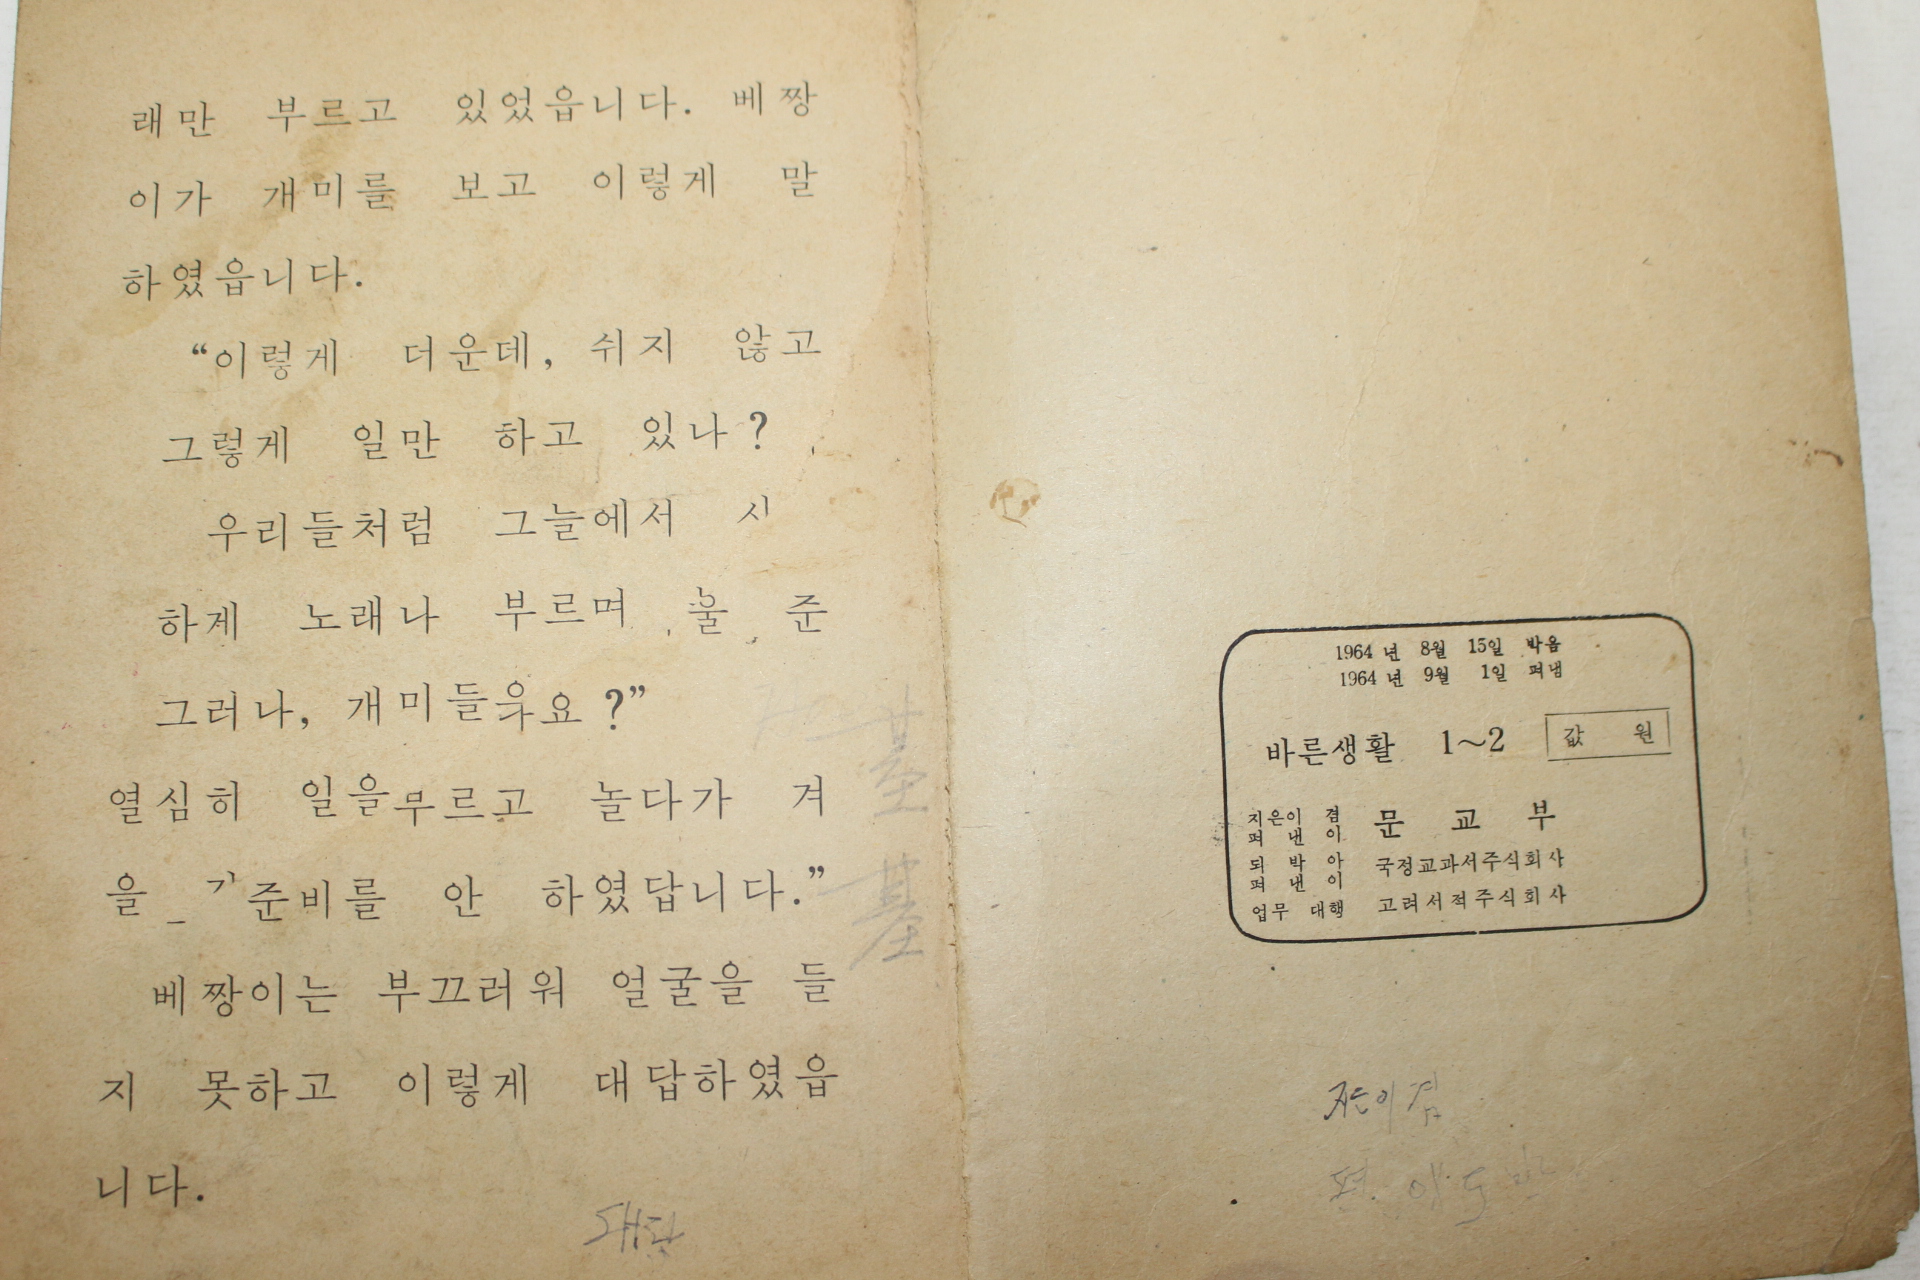 래만 부르고 있었읍니다. 베짱
이가 개미를 보고 이렇게 말
하였읍니다.
“이렇게 더운데, 쉬지 않고
그렇게 일만 하고 있나?
우리들처럼 그늘에서 시
하게 노래나 부르며 울 준
그러나, 개미들 요?”
열심히 일을 무르고 놀다가 겨
을 준비를 안 하였답니다.”
베짱이는 부끄러워 얼굴을 들
지 못하고 이렇게 대답하였읍
니다.
대답
1964년 8월 15일 박음
1964년 9월 1일 펴냄
바른생활 1~2 값 원
지은이 겸 펴낸이 문교부
되박아 펴낸이 국정교과서주식회사
업무 대행 고려서적주식회사
지은이 겸